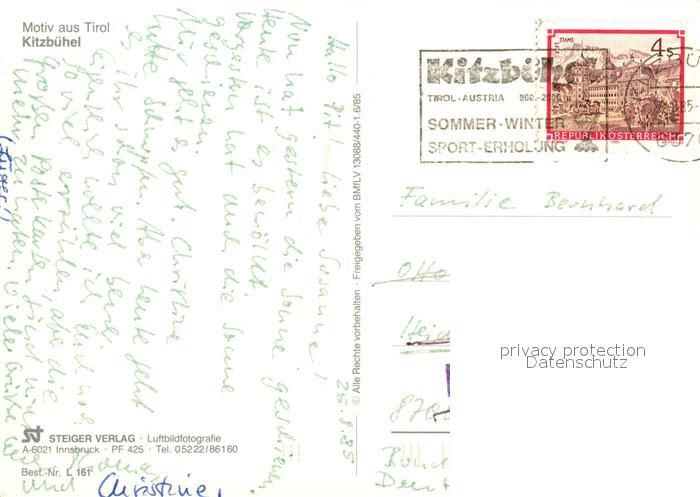 Motiv aus Tirol
Kitzbühel
Hallo Pit! Liebe Susanne!
25.8.85
Nun hat gestern die Sonne geschienen.
Heute ist es bewölkt.
Vorgestern hat auch die Sonne
geschienen.
Mir geht es gut. Christine
hatte Schnupfen. Aber heute geht
es ihr schon viel
Eigentlich wollte ich Euch noch
so viel erzählen, aber die
großen Postkarten sind nicht
mehr zu
und
Thomas
Christine
© Alle Rechte vorbehalten · Freigegeben vom BMfLV 13088/440-1.6/85
STEIGER VERLAG · Luftbildfotografie
A-6021 Innsbruck · PF 425 · Tel. 05222/86160
Best.-Nr. L 161
Kitzbühel
TIROL-AUSTRIA 800-2000 m
SOMMER-WINTER
SPORT-ERHOLUNG
STIFT STAMS
4 S
REPUBLIK ÖSTERREICH
Familie Bernhard
Otto
Hein
8700
Bund
Deut
privacy protection
Datenschutz